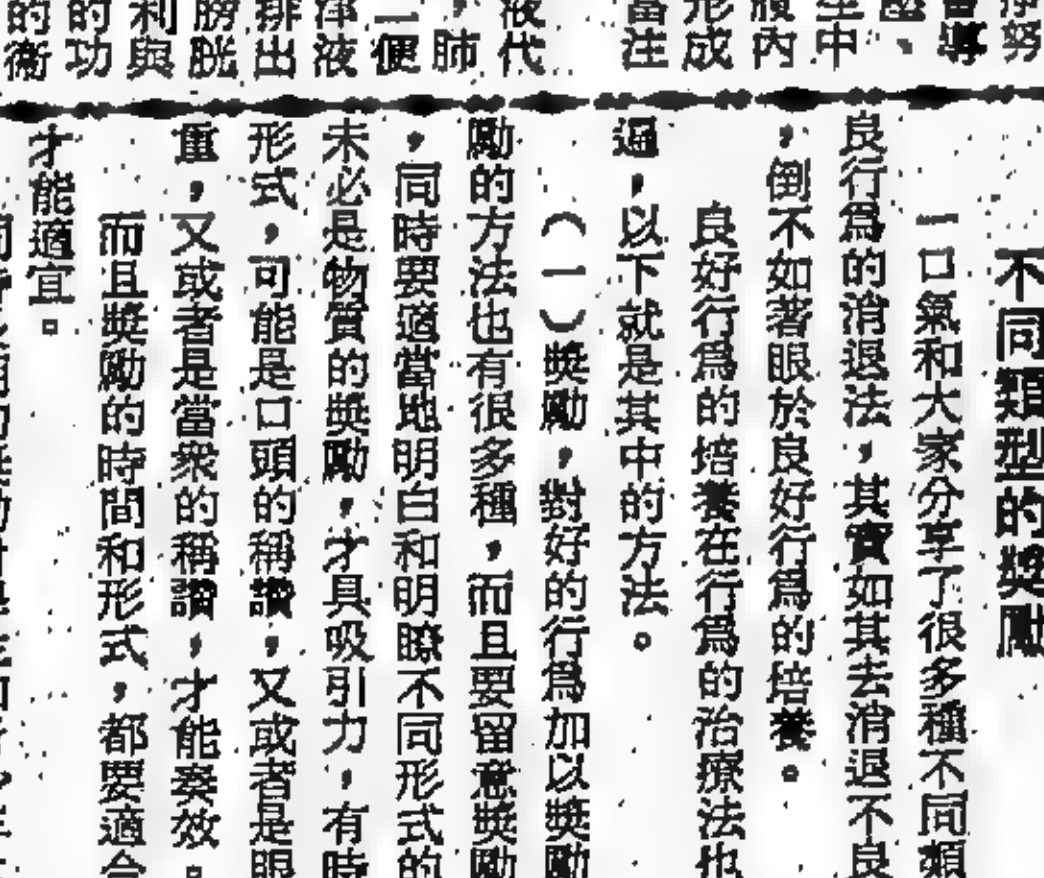 淨努
會導
壓、
生中
腹內
形成
當注
液代
，肺
二便
津液
排出
膀胱
利與
的功
的衞
不同類型的獎勵
一口氣和大家分享了很多種不同類
良行爲的消退法，其實如其去消退不良
，倒不如著眼於良好行爲的培養。
良好行爲的培養在行爲的治療法也
遍，以下就是其中的方法。
（一）獎勵，對好的行爲加以獎勵
勵的方法也有很多種，而且要留意獎勵
，同時要適當地明白和明瞭不同形式的
未必是物質的獎勵，才具吸引力，有時
形式，可能是口頭的稱讚，又或者是眼
重，又或者是當衆的稱讚，才能奏效。
而且獎勵的時間和形式，都要適合
才能適宜。